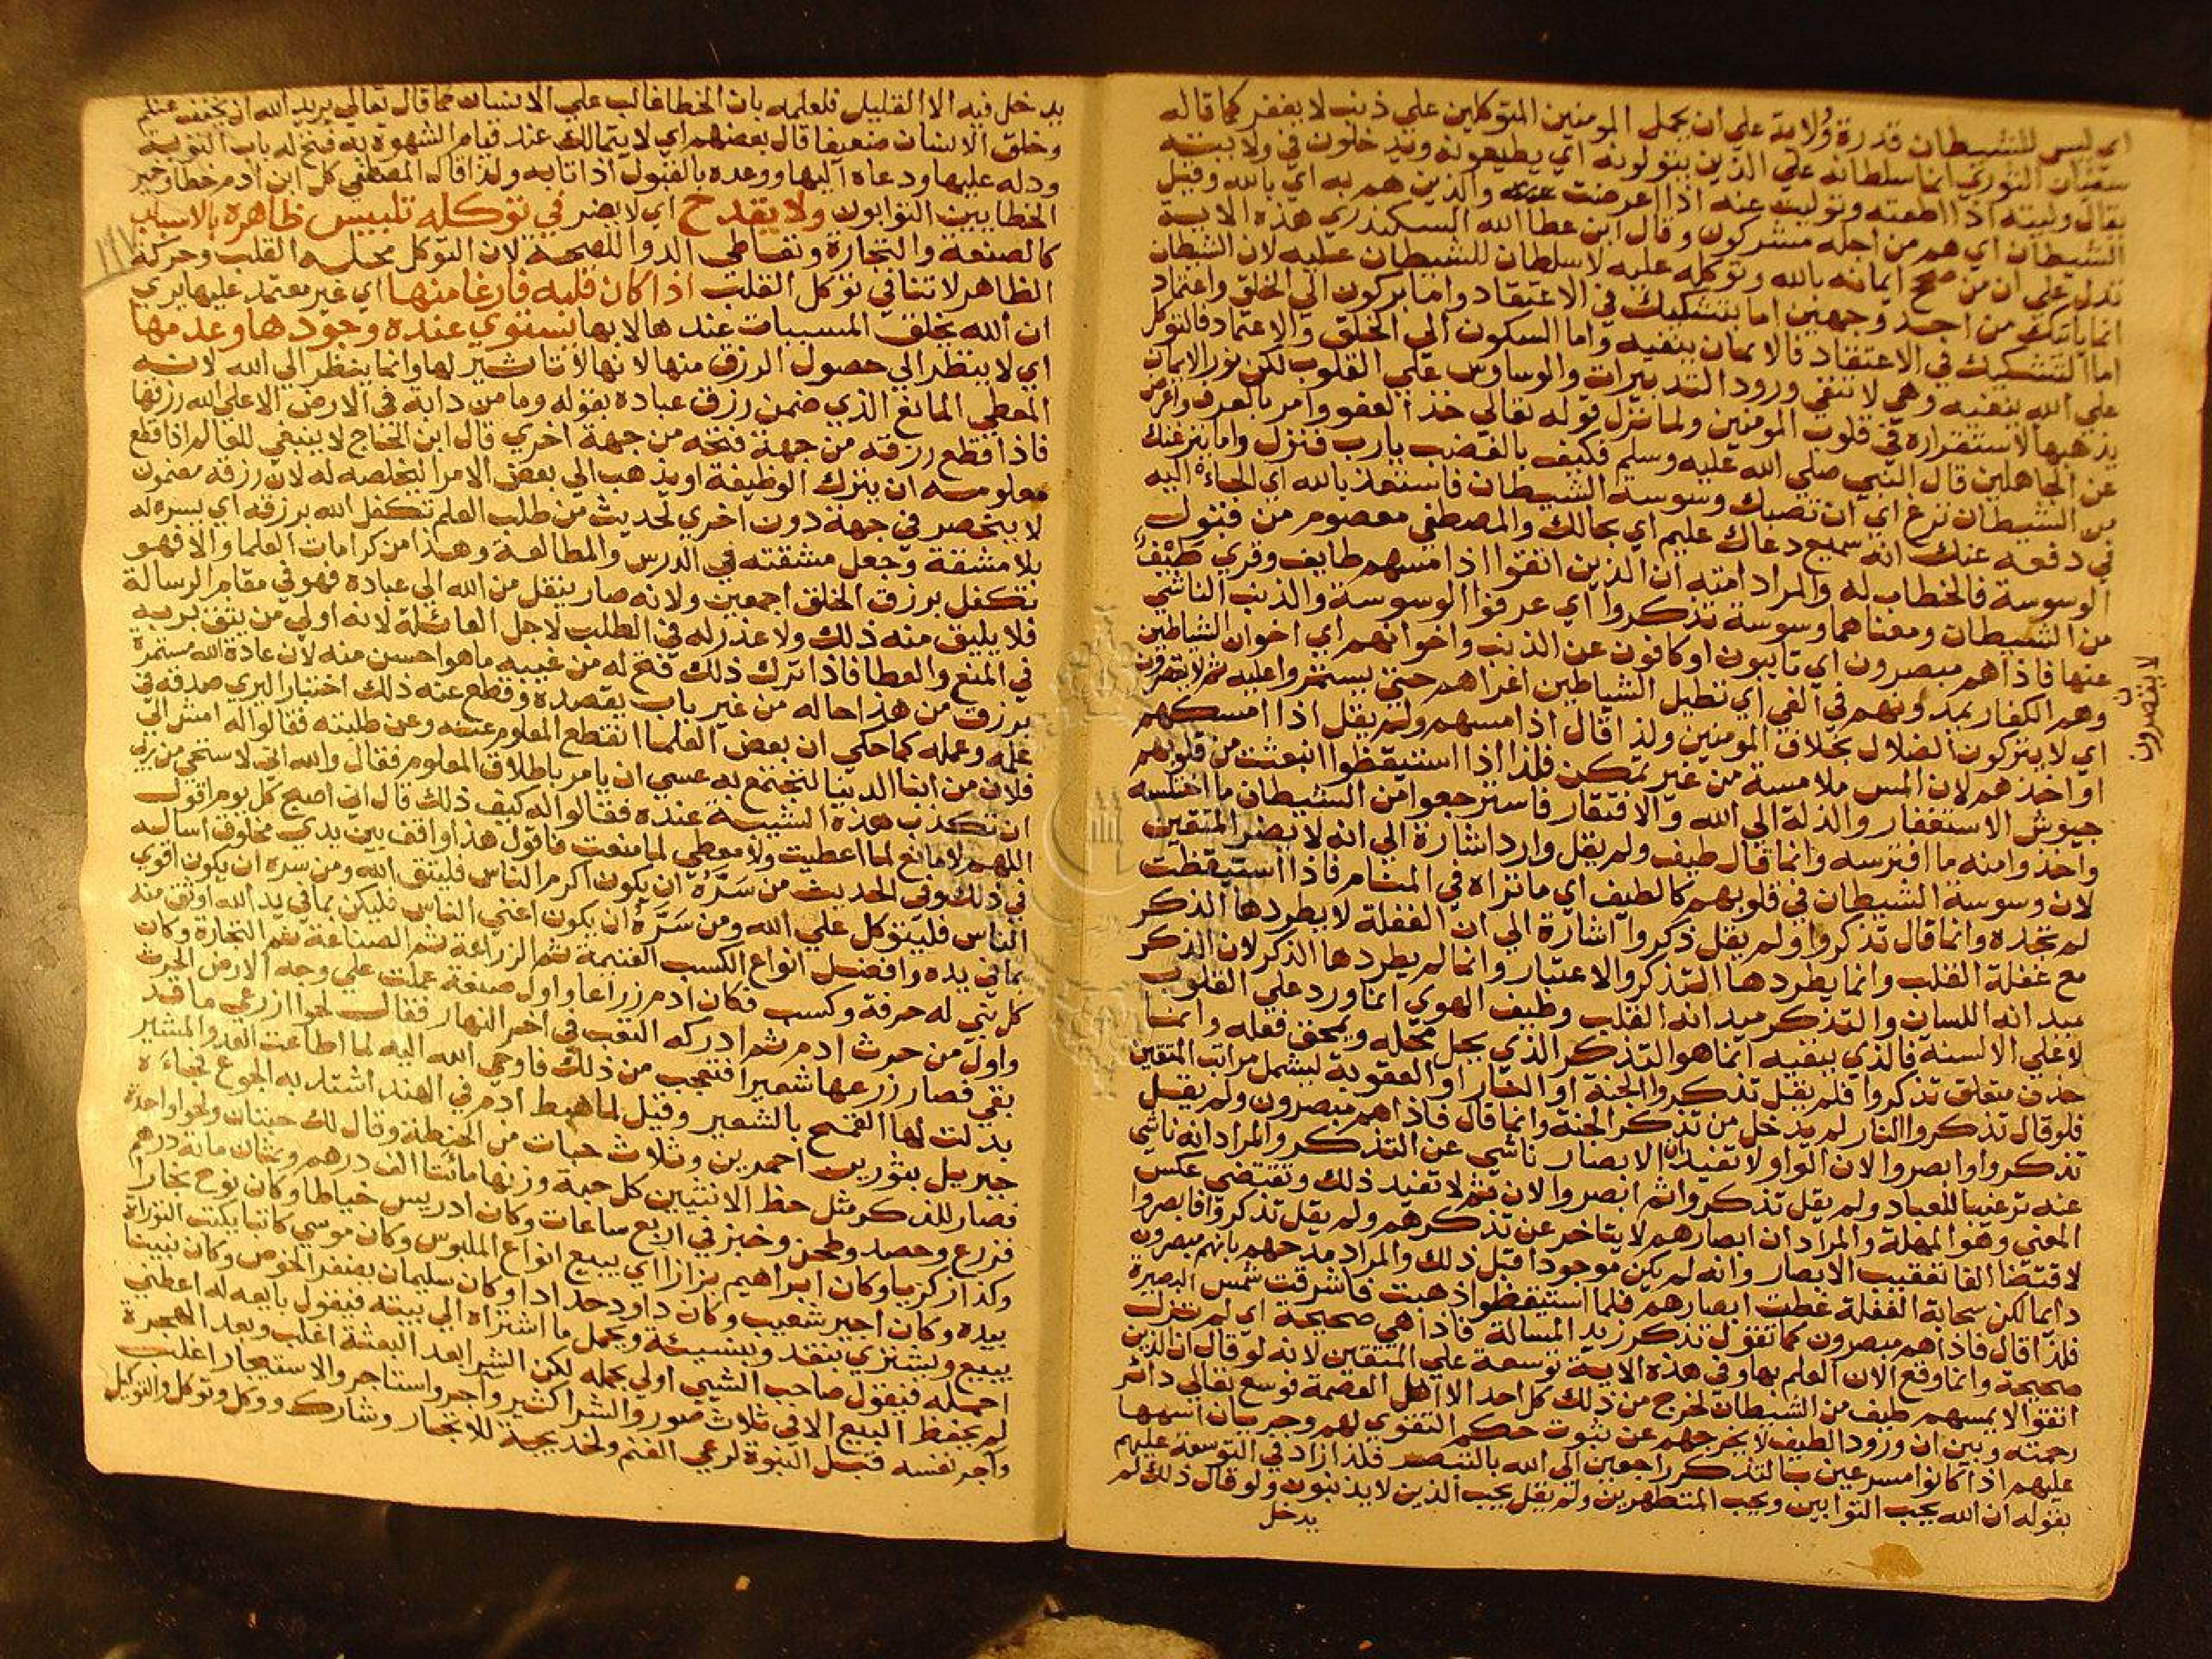 اي ليس للشيطان قدرة ولاية علي ان يحمل المومنين المتوكلين علي ذنب لا يغفر كما قاله
سفيان الثوري انما سلطانه علي الذين يتولونه اي يطيعونه ويدخلون في ولايته
يقال وليته اذا اطعته وتوليت عنه اذا اعرضت عنه والذين هم به اي بالله وقيل
الشيطان اي هم من اجله مشركون وقال ابن عطا الله السكندري هذه الاية
تدل علي ان من صحح ايمانه بالله وتوكله عليه لا سلطان للشيطان عليه لان الشيطان
انما ياتيك من احد وجهين اما بتشكيك في الاعتقاد واما بركون الي الخلق واعتماد
اما التشكيك في الاعتقاد فالايمان ينفيه واما السكون الي الخلق والاعتماد فالتوكل
علي الله ينفيه وهي لا تنفي ورود التدبيرات والوساوس علي القلوب لكن نور الايمان
يذهبها لاستقراره في قلوب المومنين ولما نزل قوله تعالي خذ العفو وامر بالعرف واعرض
عن الجاهلين قال النبي صلي الله عليه وسلم فكيف بالغضب يارب فنزل واما ينزغنك
من الشيطان نزغ اي ان تصبك وسوسة الشيطان فاستعذ بالله اي الجاء اليه
في دفعه عنك انه سميع دعاك عليم اي بحالك والمصطفي معصوم من قبول
الوسوسة فالخطاب له والمراد امته ان الذين اتقوا اذا مسهم طايف وقري طيف
من الشيطان ومعناهما وسوسة تذكروا اي عرفوا الوسوسة والذنب الناشي
عنها فاذا هم مبصرون اي تايبون او كافون عن الذنب واخوانهم اي اخوان الشياطين
وهم الكفار يمدونهم في الغي اي تطيل الشياطين اغراهم حتي يستمروا عليه ثم لا يقصرون
لا يقصرون
اي لا يتركون الضلال بخلاف المومنين ولذ اقال اذا مسهم ولم يقل اذا امسكهم
او اخذهم لان المس ملامسة من غير تمكن فلذا اذا استيقظوا انبعثت من قلوبهم
جيوش الاستغفار والذلة الي الله والافتقار فاسترجعوا من الشيطان ما اختلسه
واخذوا منه ما افترسه وانما قال طيف ولم يقل وارد اشارة الي انه لا يضر المتقين
لان وسوسة الشيطان في قلوبهم كالطيف اي ما تراه في المنام فاذا استيقظت
لم تجده وانما قال تذكروا ولم يقل ذكروا اشارة الي ان الغفلة لا يطردها الذكر
مع غفلة القلب وانما يطردها التذكر والاعتبار وانما لم يطردها الذكر لان الذكر
ميدانه اللسان والتذكر ميدانه القلب وطيف الهوي انما ورد علي القلوب
لا علي الالسنة فالذي ينفيه انما هو التذكر الذي يحل محله ويمحق فعله وانما
حذف متعلق تذكروا فلم يقل تذكروا الجنة او النار او العقوبة ليشمل مراتب المتقين
فلو قال تذكروا النار لم يدخل من تذكر الجنة وانما قال فاذا هم مبصرون ولم يقل
تذكروا وابصروا لان الواو لا تفيد ان الابصار ناشي عن التذكر والمراد انه ناشي
عنه ترغيبا للعباد ولم يقل تذكروا ثم ابصروا لان ثم لا تفيد ذلك وتقتضي عكس
المعني وهو المهلة والمراد ان ابصارهم لا يتاخر عن تذكرهم ولم يقل تذكروا فابصروا
لاقتضا الفا تعقيب الابصار وانه لم يكن موجودا قبل ذلك والمراد مدحهم بانهم مبصرون
دايما لكن سحابة الغفلة غطت ابصارهم فلما استيقظوا ذهبت فاشرقت شمس البصيرة
فلذا قال فاذا هم مبصرون كما تقول تذكر زيد المسالة فاذا هي صحيحة اي لم تزل
صحيحة وانما وقع الان العلم بها وفي هذه الاية توسعة علي المتقين لانه لو قال ان الذين
اتقوا لا يمسهم طيف من الشيطان لخرج من ذلك كل احد الا اهل العصمة فوسع تعالي دائر
رحمته وبين ان ورود الطيف لا يخرجهم عن ثبوت حكم التقوي لهم وجريان اسمها
عليهم اذا كانوا مسرعين بالتذكر راجعين الي الله بالتبصر فلذا زاد في التوسعة عليهم
بقوله ان الله يحب التوابين ويحب المتطهرين ولم يقل يحب الذين لا يذنبون ولو قال ذلك لم
يدخل
يدخل فيه الا القليل فلعلمه بان الخطا غالب علي الانسان كما قال تعالي يريد الله ان يخفف عنكم
وخلق الانسان ضعيفا قال بعضهم اي لا يتمالك عند قيام الشهوة به فتح له باب التوبة
ودله عليها ودعاه اليها ووعده بالقبول اذا تاب ولذا قال المصطفي كل ابن ادم خطا وخير
الخطايين التوابون ولا يقدح اي لا يضر في توكله تلبيس ظاهره بالاسباب
كالصنعة والتجارة وتعاطي الدوا للصحة لان التوكل محله القلب وحركة
الظاهر لا تنافي توكل القلب اذا كان قلبه فارغا منها اي غير معتمد عليها يري
ان الله يخلق المسببات عندها لا بها يستوي عنده وجودها وعدمها
اي لا ينظر الي حصول الرزق منها لانها لا تاثير لها وانما ينظر الي الله لانه
المعطي المانع الذي ضمن رزق عباده بقوله وما من دابة في الارض الا علي الله رزقها
فاذا قطع رزقه من جهة فتحه من جهة اخري قال ابن الحاج لا ينبغي للعالم اذا قطع
معلومه ان يترك الوظيفة او يذهب الي بعض الامرا ليخلصه له لان رزقه مضمون
لا ينحصر في جهة دون اخري لحديث من طلب العلم تكفل الله برزقه اي يسره له
بلا مشقة وجعل مشقته في الدرس والمطالعة وهذا من كرامات العلما والا فهو
تكفل برزق الخلق اجمعين ولانه صار ينقل من الله الي عباده فهو في مقام الرسالة
فلا يليق منه ذلك ولا عذر له في الطلب لاجل العائلة لانه اولي من يثق بربه
في المنع والعطا فاذا ترك ذلك فتح له من غيبه ما هو احسن منه لان عادة الله مستمرة
برزق من هذا حاله من غير باب يقصده وقطع عنه ذلك اختبارا ليري صدقه في
علمه وعمله كما حكي ان بعض العلما انقطع المعلوم عنه وعن طلبته فقالوا له امش الي
فلان من ابنا الدنيا لتجتمع به عسي ان يامر باطلاق المعلوم فقال والله اني لاستحي من ربي
ان تكذب هذه الشيبة عنده فقالوا له كيف ذلك قال اني اصبح كل يوم اقول
اللهم لا مانع لما اعطيت ولا معطي لما منعت فاقول هذا واقف بين يدي مخلوق اساله
في ذلك وفي الحديث من سره ان يكون اكرم الناس فليتق الله ومن سره ان يكون اقوي
الناس فليتوكل علي الله ومن سره ان يكون اغني الناس فليكن بما في يد الله اوثق منه
بما في يده وافضل انواع الكسب الغنيمة ثم الزراعة ثم الصناعة ثم التجارة وكان
كل نبي له حرفة وكسب فكان ادم زراعا واول صنعة عملت علي وجه الارض الحرث
واول من حرث ادم ثم ادركه التعب في اخر النهار فقال لحوا ازرعي ما قد
بقي فصار زرعها شعيرا فتعجب من ذلك فاوحي الله اليه لما اطاعت العدو المشير
بدلت لها القمح بالشعير وقيل لما هبط ادم في الهند اشتد به الجوع فجاءه
جبريل بثورين احمرين وثلاث حبات من الحنطة وقال لك حبتان ولحوا واحدة
فصار للذكر مثل حظ الانثيين كل حبة وزنها مائتا الف درهم وثمان مائة درهم
فزرع وحصد وطحن وخبز في اربع ساعات وكان ادريس خياطا وكان نوح نجارا
وكذا زكريا وكان ابراهيم بزازا اي يبيع انواع الملبوس وكان موسي كاتبا يكتب التوراة
بيده وكان اجير شعيب وكان داود حدادا وكان سليمان يضفر الخوص وكان نبينا
يبيع ويشتري بنقد ونسيئة ويحمل ما اشتراه الي بيته فيقول بايعه له اعطني
احمله فيقول صاحب الشي اولي بحمله لكن الشرا بعد البعثة اغلب وبعد الهجرة
لم يحفظ البيع الا في ثلاث صور والشرا كثير واجر واستاجر والاستيجار اغلب
واجر نفسه قبل النبوة لرعي الغنم ولخديجة للاتجار وشارك ووكل وتوكل والتوكيل